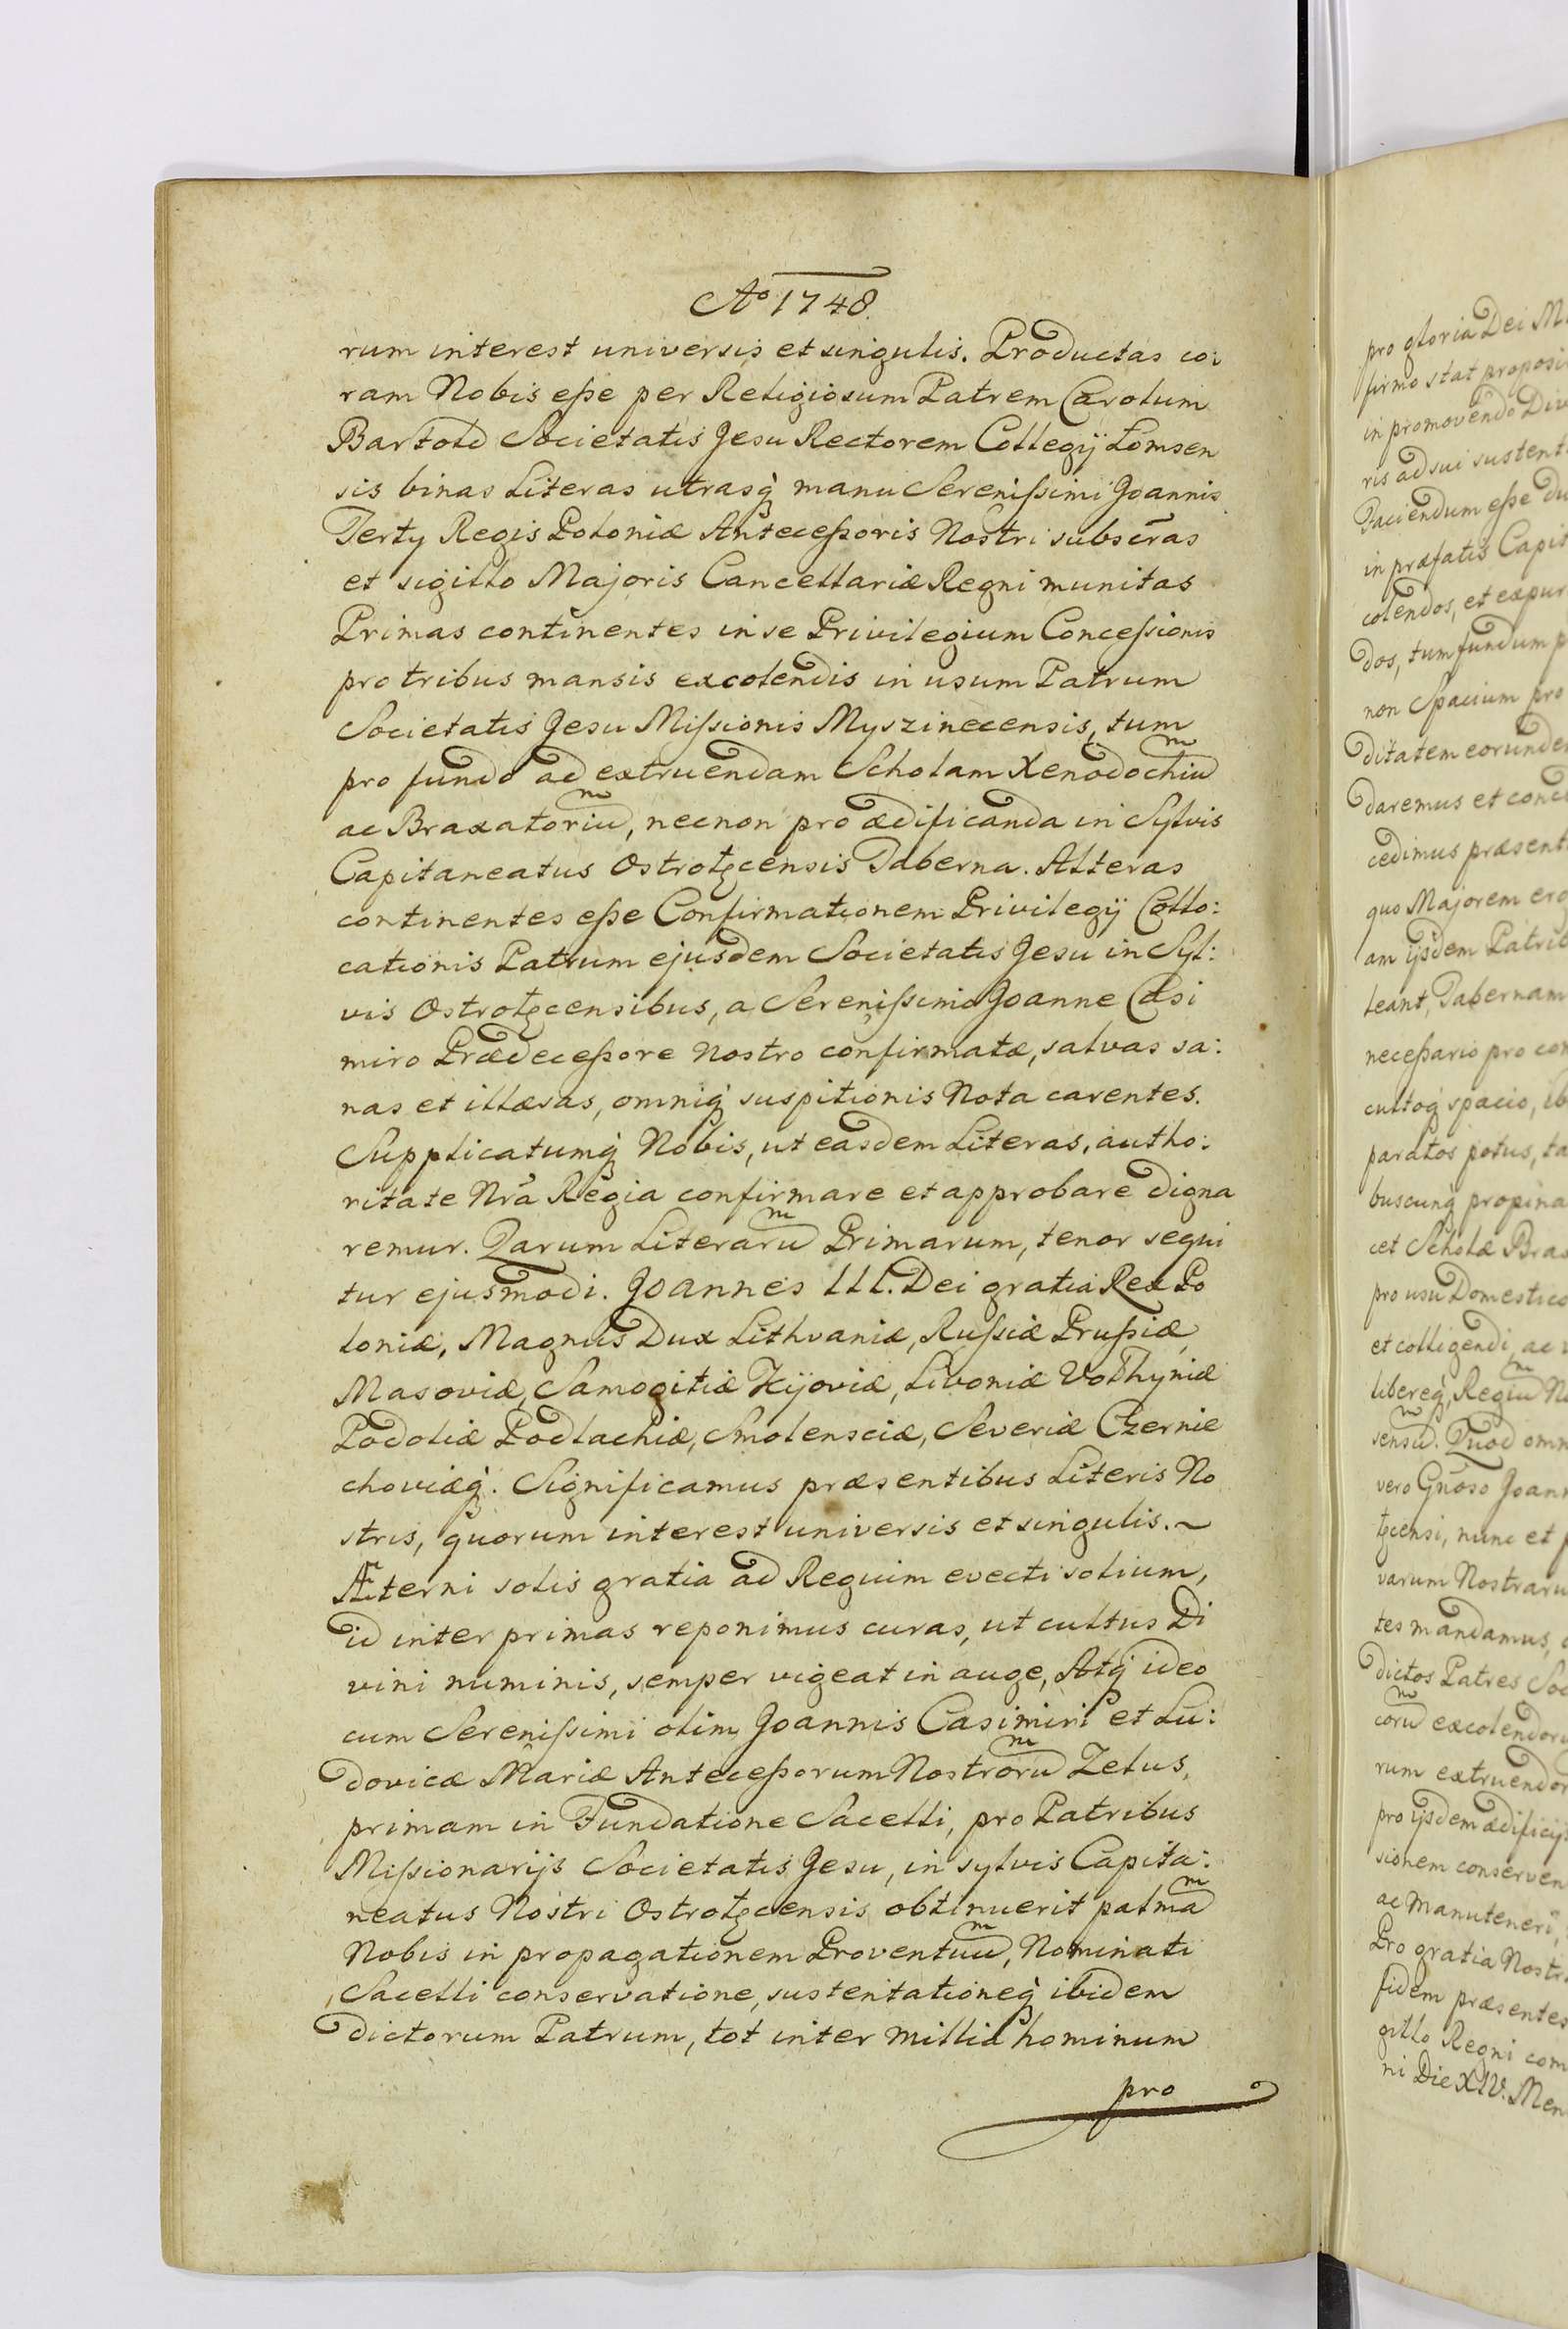 Ao 1748.
rum interest universis et singulis. Productas co:
ram Nobis eße per Religiosum Patrem Carolum
Bartold Societatis Jesu Rectorem Collegij Lomsen
sis binas Literas utrasq́ manu Sereniſsimi Joannis
Tertÿ Regis Poloniæ Anteceßoris Nostri subscr̃as
et sigillo Majoris Cancellariæ Regni munitas
Primas continentes in se Privilegium Conceſsionis
pro tribus mansis excolendis in usum Patrum
Societatis Jesu Miſsionis Myszinecensis, tum
pro fundo ad extruendam Scholam Xenodochiu͞m
ac Braxatoriu͞m, necnon pro ædificanda in Sylvis
Capitaneatus Ostrołęcensis Taberna. Alteras
continentes eße Confirmationem Privilegij Collo:
cationis Patrum ejusdem Societatis Jesu in Syl:
vis Ostrołęcensibus, a Sereniſsimo Joanne Casi
miro Prædeceßore Nostro confirmatæ, salvas sa:
nas et illæsas, omniq́ suspitionis Nota carentes.
Supplicatumq́ Nobis, ut easdem Literas, autho:
ritate Nr̃a Regia confirmare et approbare digna
remur. Qarum Literaru͞m Primarum, tenor sequi
tur ejusmodi. Joannes III. Dei gratia Rex Po
loniæ, Magnus Dux Lithvaniæ, Rußiæ Prußiæ,
Masoviæ, Samogitiæ Kijoviæ, Livoniæ Volhyniæ
Podoliæ Podlachiæ, Smolensciæ, Severiæ Czernie
choviæq́. Significamus præsentibus Literis No
stris, quorum interest universis et singulis. ~
Æterni solis gratia ad Reguim evecti solium,
id inter primas reponimus curas, ut cultus Di
vini numinis, semper vigeat in auge, Atq́ ideo
cum Sereniſsimi olim Joannis Casimiri et Lu:
dovicæ Mariæ Anteceßorum Nostroru͞m Zelus,
primam in Fundatione Sacelli, pro Patribus
Miſsionarijs Societatis Jesu, in sylvis Capita:
neatus Nostri Ostrołęcensis obtinuerit palma͞m
Nobis in propagationem Proventuu͞m, Nominati
Sacelli conservatione, sustentationeq́ ibidem
dictorum Patrum, tot inter millia hominum
pro
pro gloria Dei
firmo stat
in promovendo
ris ad sui
Faciendum eße
in præfatis
colendos, et
dos, tum fundum
non Spacium pro
ditatem
daremus et
cedimus
quo Majorem
am ijsdem
leant, Tabernam
neceßario pro
cultoq́ spacio,
paratos potus,
buscunq́
cet Scholæ
pro usu Domestico
et colligendi, ac
libereq́,
sensu͞m. Quod
vero Gñoso
nunc et
varum
tes mandamus,
dictos Patres
coru͞m
rum
pro ijsdem
sionem
ac Manuteneri,
Pro gratia
fidem præsentes
gillo Regni
ni Die XIV.